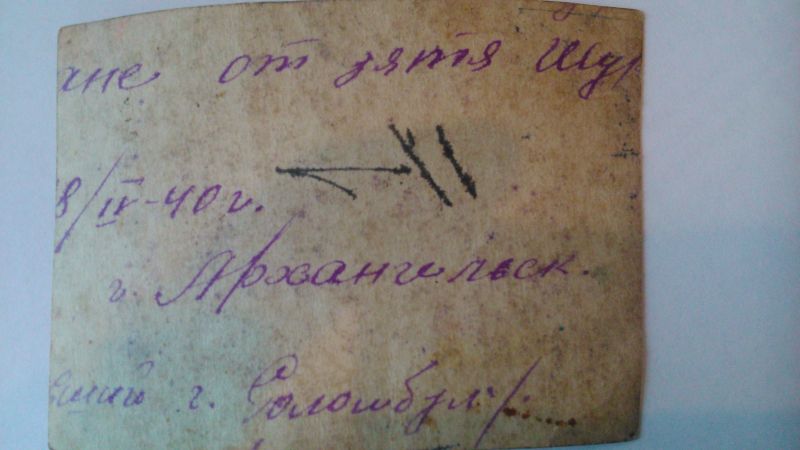 ане от зятя Шур
8/IV-40 г.
г. Архангильск.
г. Соломбул